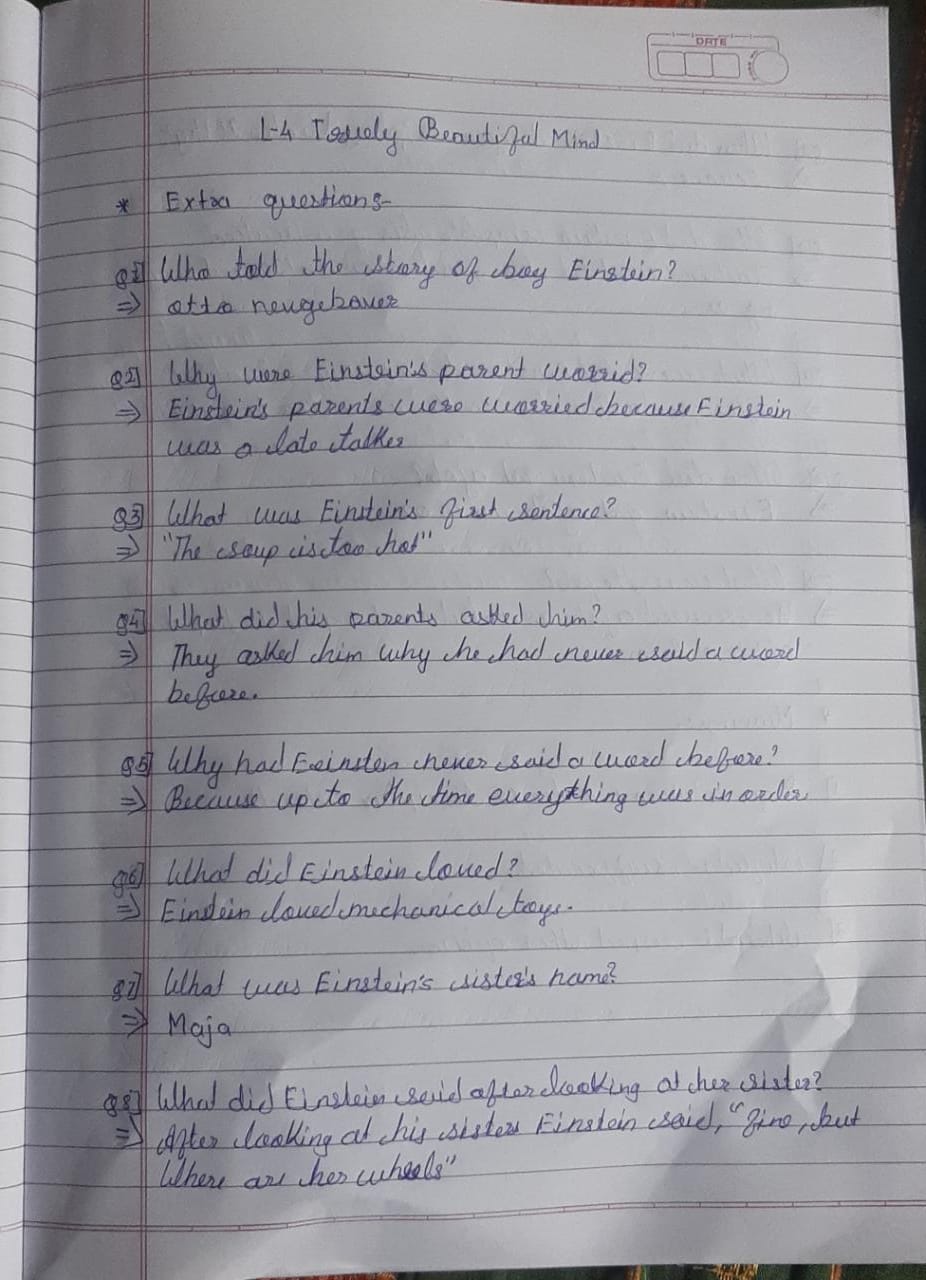 DATE
L-4 Truely Beautiful Mind
* Extra questions-
Q1] Who told the story of boy Einstein?
⇒ otto neugebauer
Q2] Why were Einstein's parent worrid?
⇒ Einstein's parents were worried because Einstein
was a late talker
Q3] What was Einstein's first sentence?
⇒ "The soup is too hot"
Q4] What did his parents asked him?
⇒ They asked him why he had never said a word
before.
Q5] Why had Eeinsten never said a word before?
⇒ Because up to the time everything was in order
Q6] What did Einstein loved?
⇒ Einstein loved mechanical toys.
Q7] What was Einstein's sister's name?
⇒ Maja
Q8] What did Einstein said after looking at her sister?
⇒ After looking at his sister Einstein said, "fine, but
Where are her wheels"